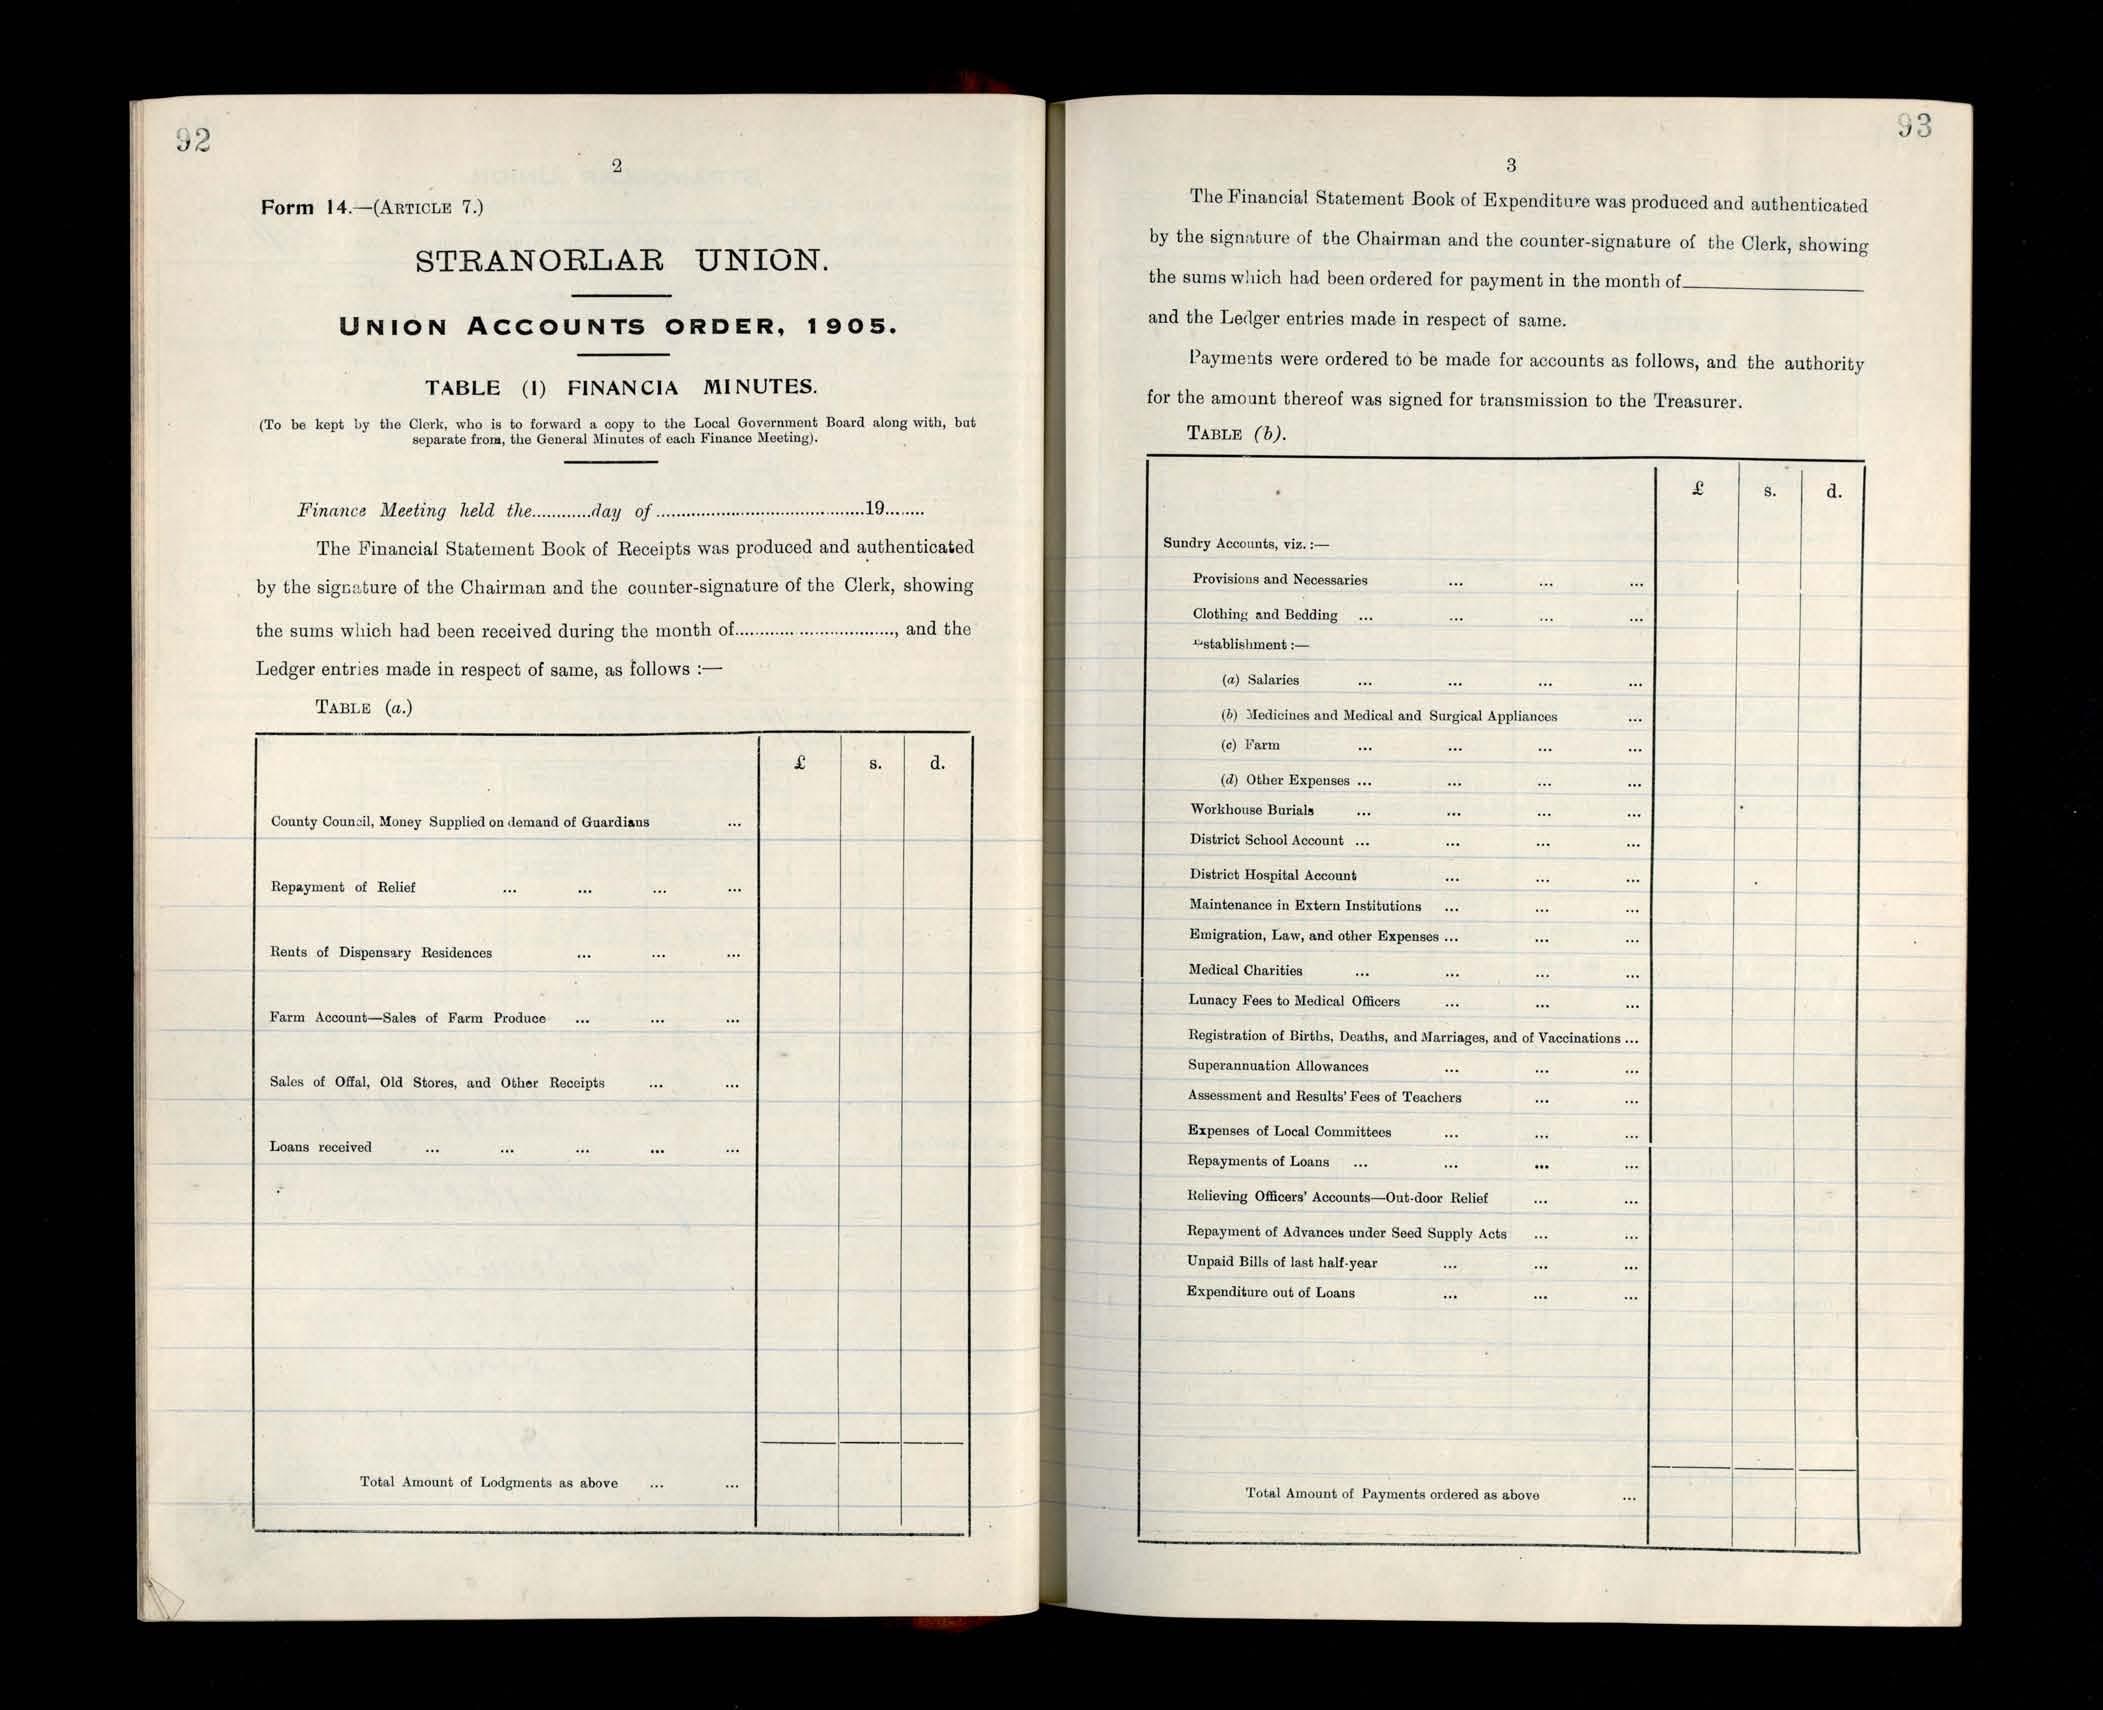 92
2
Form 14.—(ARTICLE 7.)
STRANORLAR UNION.
UNION ACCOUNTS ORDER, 1905.
TABLE (I) FINANCIA MINUTES.
(To be kept by the Clerk, who is to forward a copy to the Local Government Board along with, but
separate from, the General Minutes of each Finance Meeting).
Finance Meeting held the............day of ..........................................19........
The Financial Statement Book of Receipts was produced and authenticated
by the signature of the Chairman and the counter-signature of the Clerk, showing
the sums which had been received during the month of.................................., and the
Ledger entries made in respect of same, as follows :—
TABLE (a.)
£ s. d.
County Council, Money Supplied on demand of Guardians ...
Repayment of Relief ... ... ... ...
Rents of Dispensary Residences ... ... ...
Farm Account—Sales of Farm Produce ... ... ...
Sales of Offal, Old Stores, and Other Receipts ... ...
Loans received ... ... ... ... ...
Total Amount of Lodgments as above ... ...
93
3
The Financial Statement Book of Expenditure was produced and authenticated
by the signature of the Chairman and the counter-signature of the Clerk, showing
the sums which had been ordered for payment in the month of
and the Ledger entries made in respect of same.
Payments were ordered to be made for accounts as follows, and the authority
for the amount thereof was signed for transmission to the Treasurer.
TABLE (b).
£ s. d.
Sundry Accounts, viz. :—
Provisions and Necessaries ... ... ...
Clothing and Bedding ... ... ... ...
Establishment :—
(a) Salaries ... ... ... ...
(b) Medicines and Medical and Surgical Appliances ...
(c) Farm ... ... ... ...
(d) Other Expenses ... ... ... ...
Workhouse Burials ... ... ... ...
District School Account ... ... ... ...
District Hospital Account ... ... ...
Maintenance in Extern Institutions ... ... ...
Emigration, Law, and other Expenses ... ... ...
Medical Charities ... ... ... ...
Lunacy Fees to Medical Officers ... ... ...
Registration of Births, Deaths, and Marriages, and of Vaccinations ...
Superannuation Allowances ... ... ...
Assessment and Results' Fees of Teachers ... ...
Expenses of Local Committees ... ... ...
Repayments of Loans ... ... ... ...
Relieving Officers' Accounts—Out-door Relief ... ...
Repayment of Advances under Seed Supply Acts ... ...
Unpaid Bills of last half-year ... ... ...
Expenditure out of Loans ... ... ...
Total Amount of Payments ordered as above ...